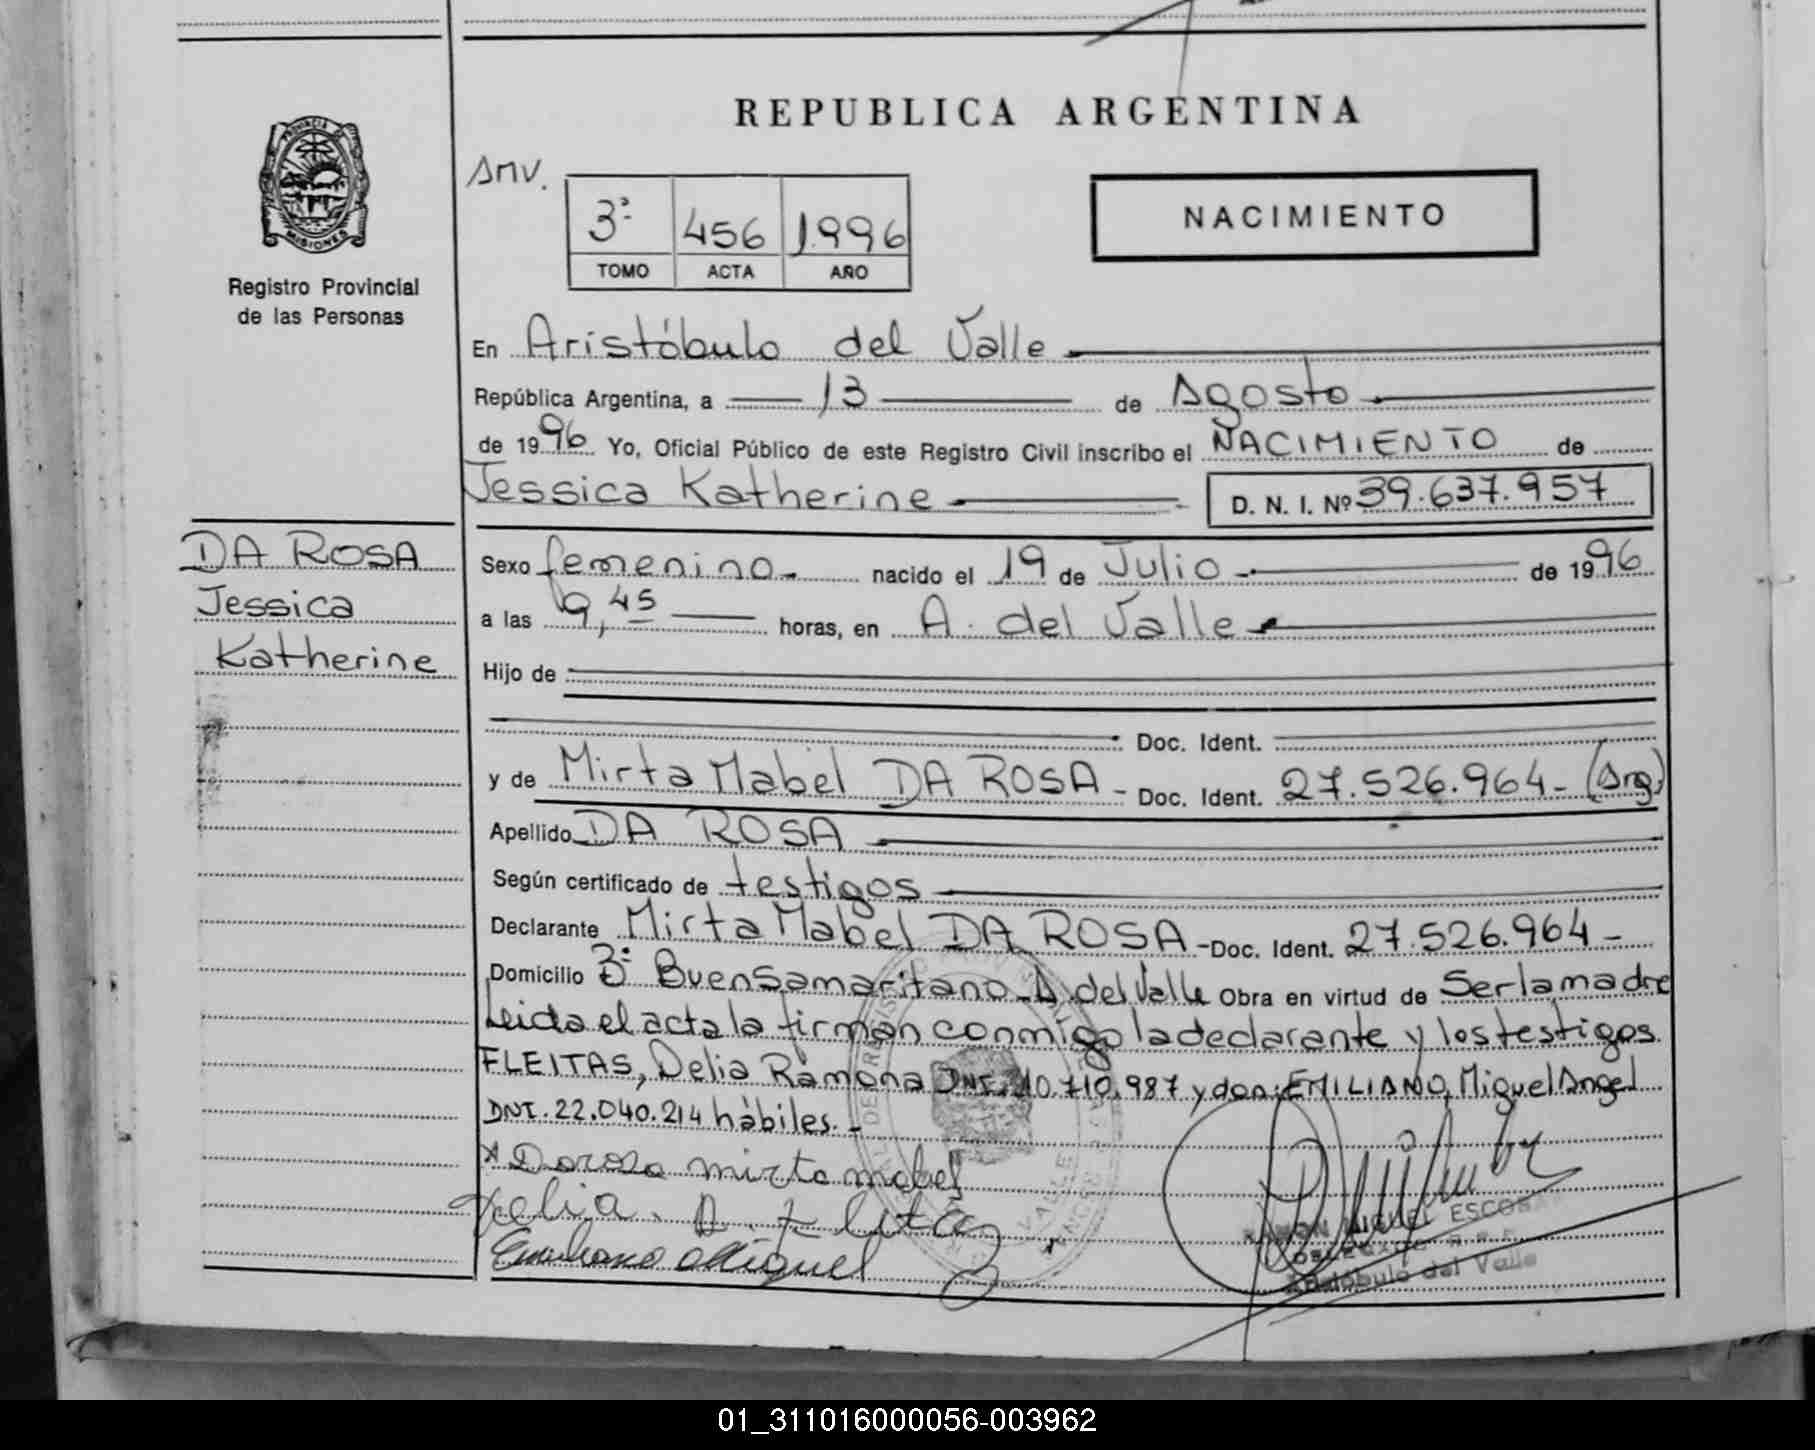 REPUBLICA ARGENTINA
PROVINCIA DE
MISIONES
Registro Provincial
de las Personas
Anv.
3º 456 1996
TOMO ACTA AÑO
NACIMIENTO
En Aristóbulo del Valle
República Argentina, a 13 de Agosto
de 1996 Yo, Oficial Público de este Registro Civil inscribo el NACIMIENTO de
Jessica Katherine D. N. I. Nº 39.637.957
DA ROSA
Jessica
Katherine
Sexo femenino nacido el 19 de Julio de 1996
a las 9,45 horas, en A. del Valle
Hijo de
Doc. Ident.
y de Mirta Mabel DA ROSA - Doc. Ident. 27.526.964- (Arg)
Apellido DA ROSA
Según certificado de testigos
Declarante Mirta Mabel DA ROSA - Doc. Ident. 27.526.964 -
Domicilio Bº Buen Samaritano - A. del Valle Obra en virtud de Ser la madre
Leida el acta la firman conmigo la declarante y los testigos
FLEITAS, Delia Ramona DNI. 10.710.987 y don: EMILIANO, Miguel Angel
DNI. 22.040.214 hàbiles. -
x Darosa mirta mabel
Delia. A. Fleitas
Emiliano Miguel
RAMON MIGUEL ESCOBAR
DELEGADO R. P. P.
Aristóbulo del Valle
01_311016000056-003962